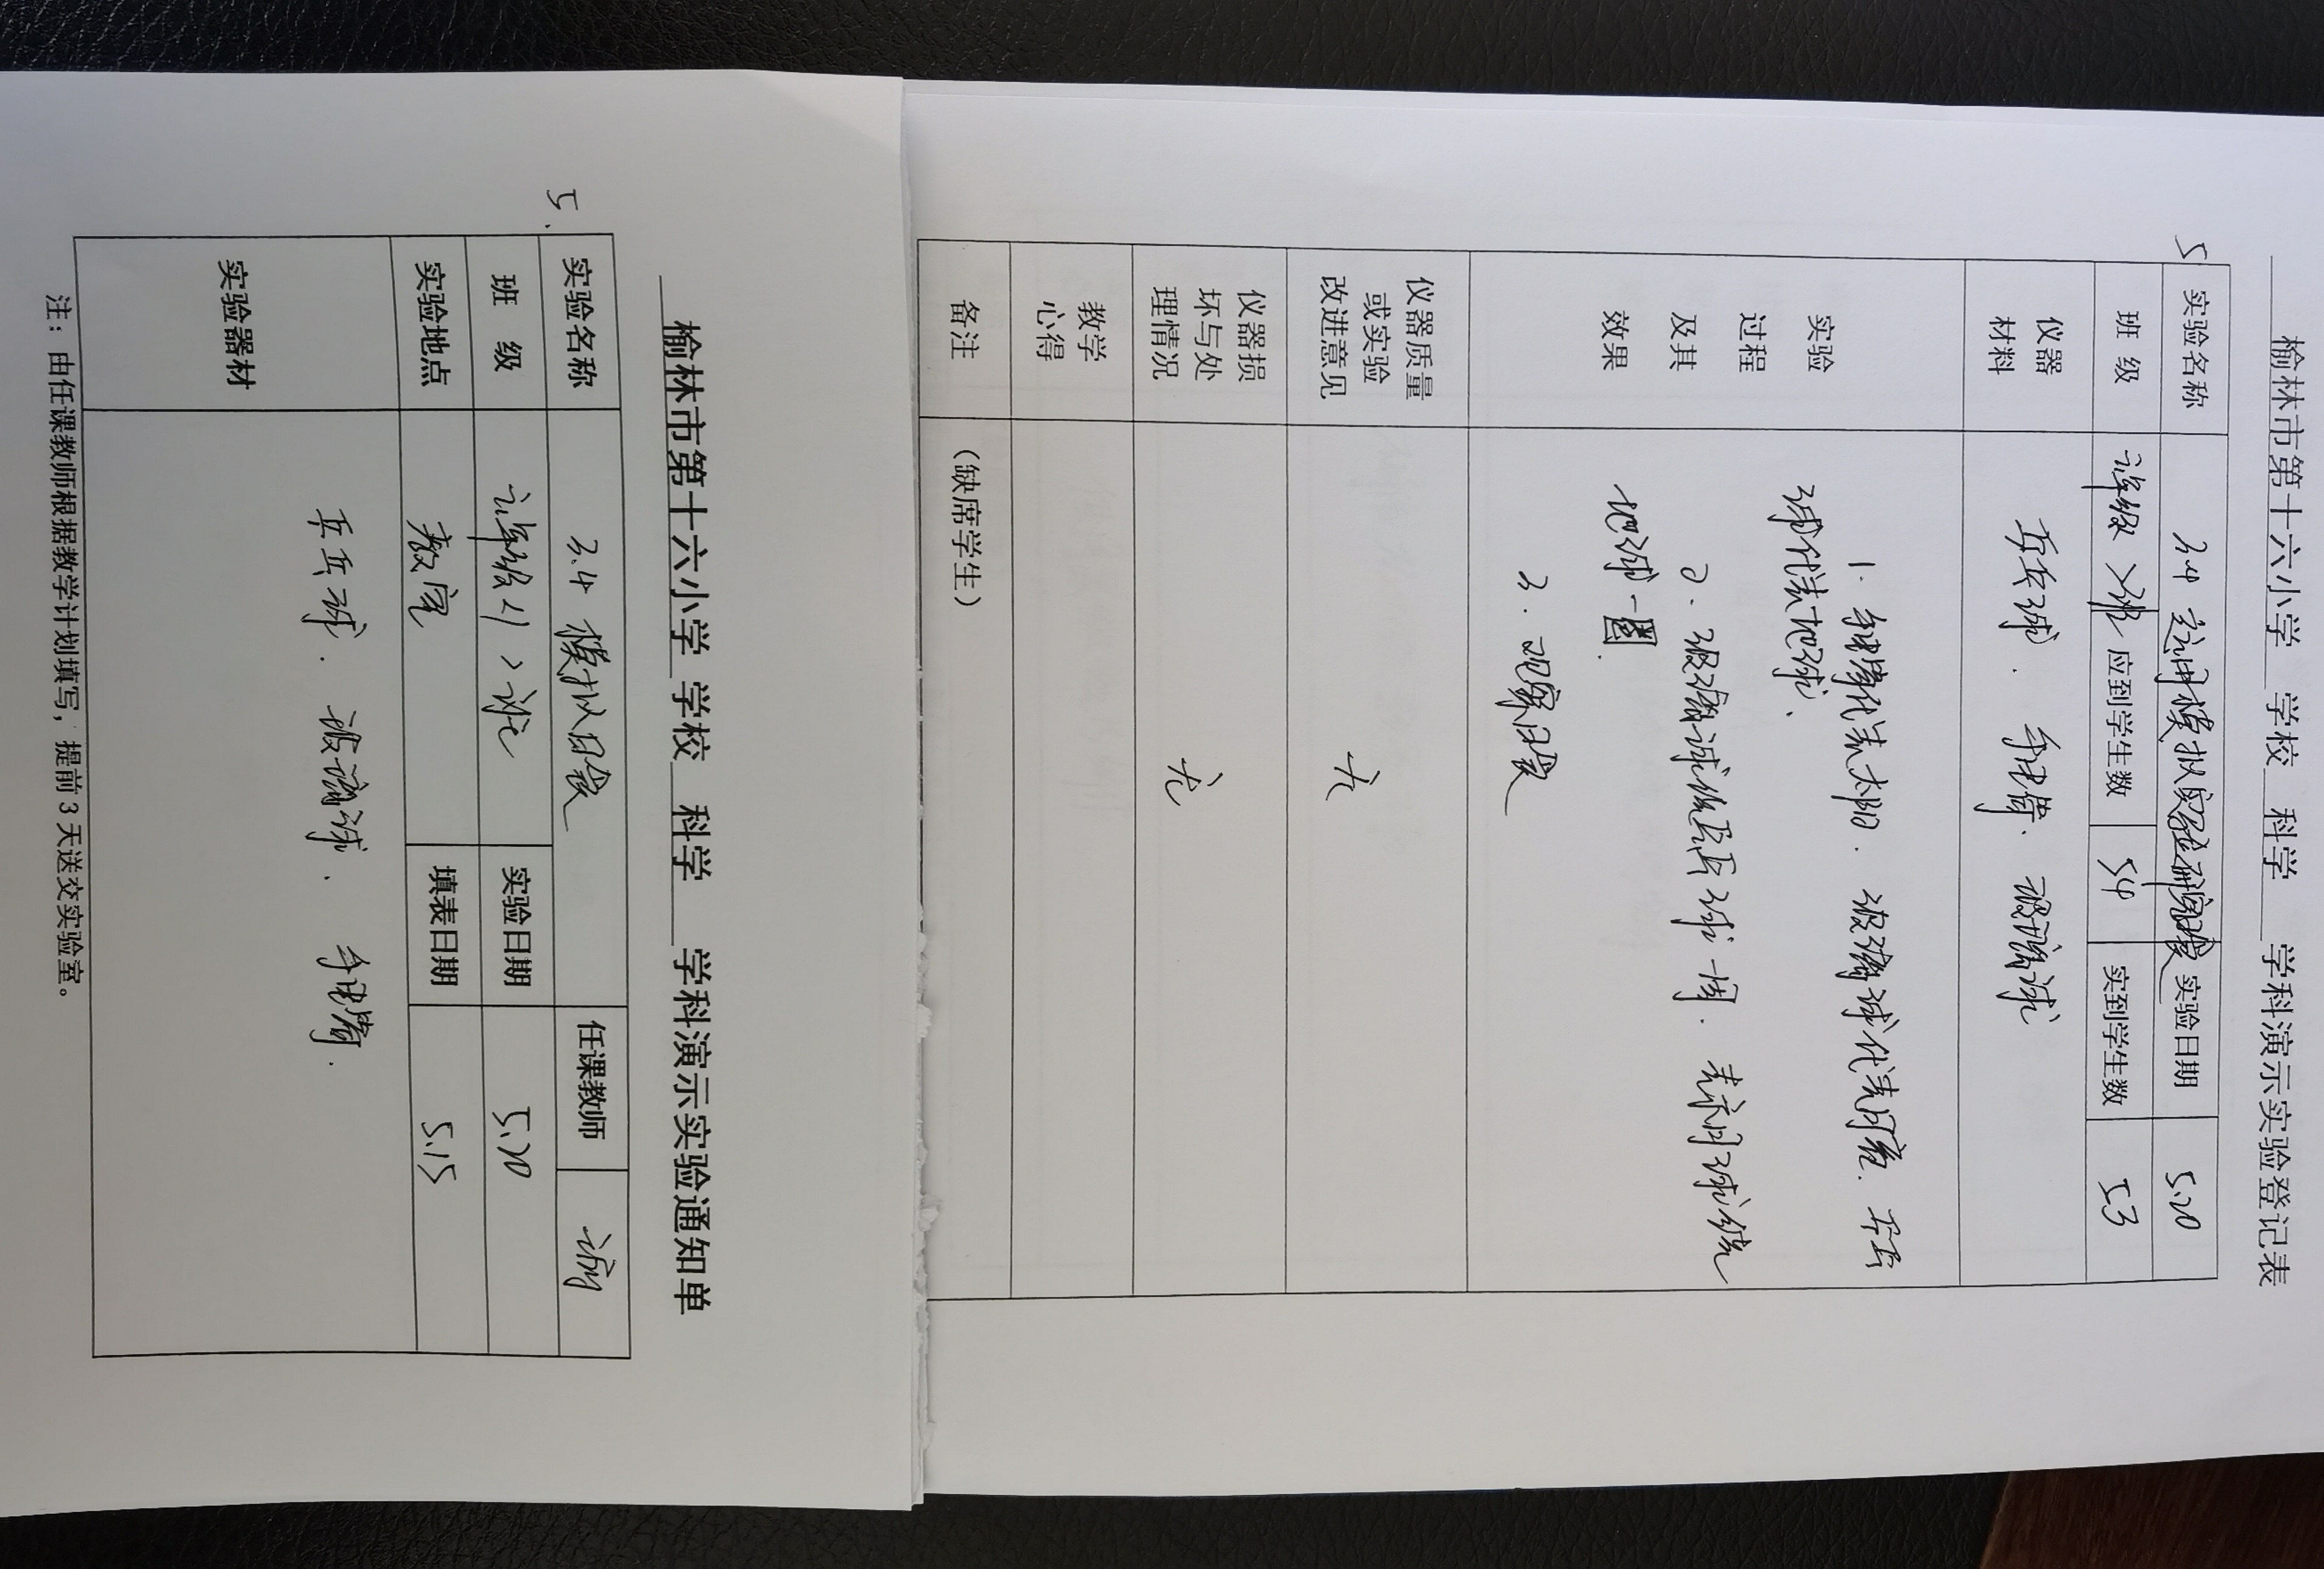 榆林市第十六小学 学校 科学 学科演示实验登记表
5
实验名称 3.4 模拟实验研究日食 实验日期 5.20
班 级 年级 班 应到学生数 54 实到学生数 53
仪器
材料
乒乓球. 手电筒. 玻璃球
实验
过程
及其
效果
1. 手电筒代表太阳. 玻璃球代表月亮. 乒乓
球代表地球.
2. 玻璃球绕乒乓球一周. 表示月球绕
地球一圈.
3. 观察日食
仪器质量
或实验
改进意见
无
仪器损
坏与处
理情况
无
教学
心得
备注 (缺席学生)
榆林市第十六小学 学校 科学 学科演示实验通知单
5.
实验名称 3.4 模拟日食 任课教师
班 级 年级<1>班 实验日期 5.20
实验地点 教室 填表日期 5.15
实验器材 乒乓球. 玻璃球. 手电筒.
注：由任课教师根据教学计划填写，提前3天送交实验室。